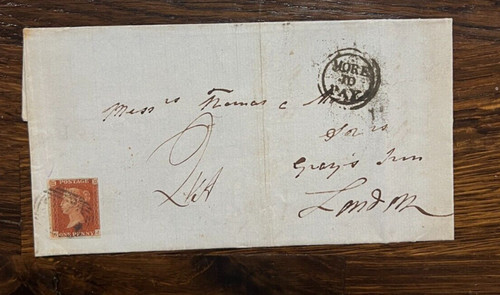 MORE
TO
PAY
Mess rs Thomas &
Gray's Inn
London
POSTAGE
ONE PENNY